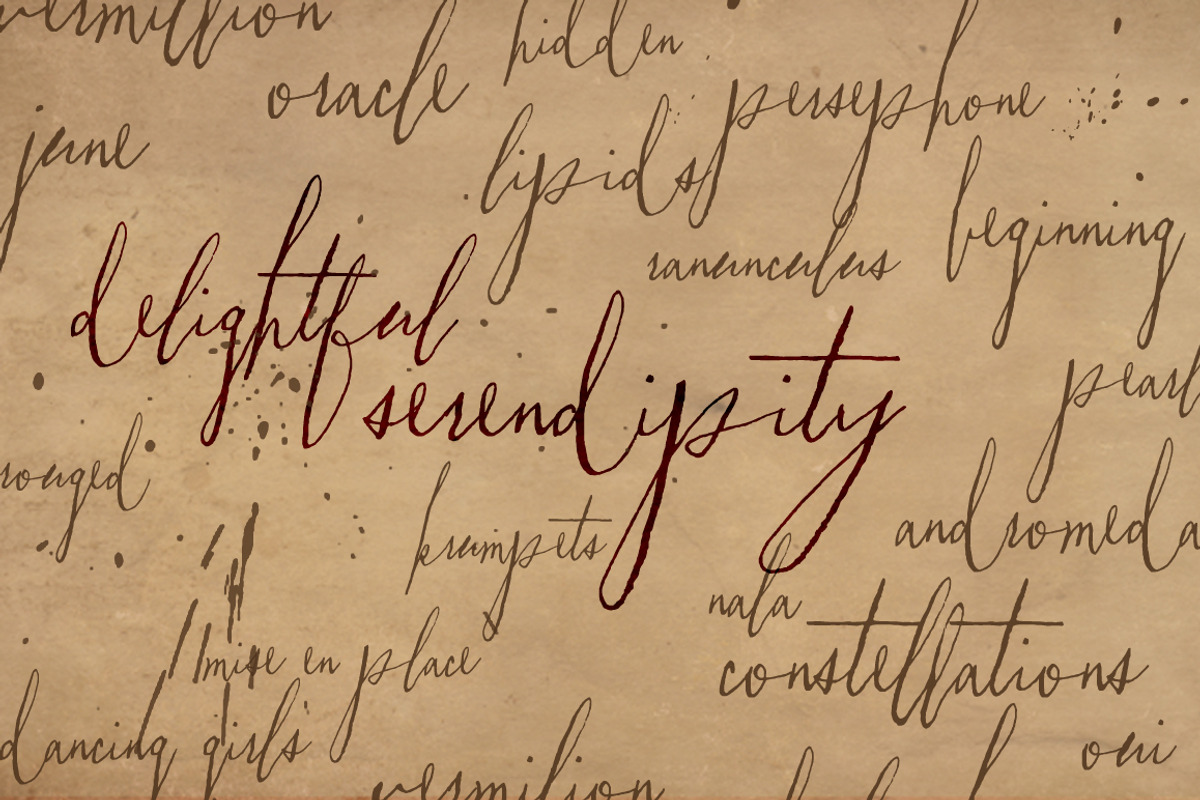 vermillion
hidden
oracle
persephone
june
lipids
beginning
ranunculus
delightful
serendipity
pearl
rouged
andromeda
krumpets
nala
mise en place
constellations
dancing girls
oui
vermilion